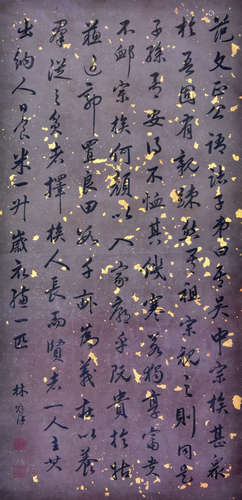 范文正公語諸子弟曰吾吳中宗族甚衆
於吾固有親疎然吾祖宗視之則同是
子孫吾安得不恤其饑寒若獨享富貴
不卹宗族何顏以入家廟乎既貴於姑
蘇近郭置良田數千畝為義莊以養
羣從之貧者擇族人長而賢者一人主其
出納人日食米一升歲衣縑一匹
林則徐